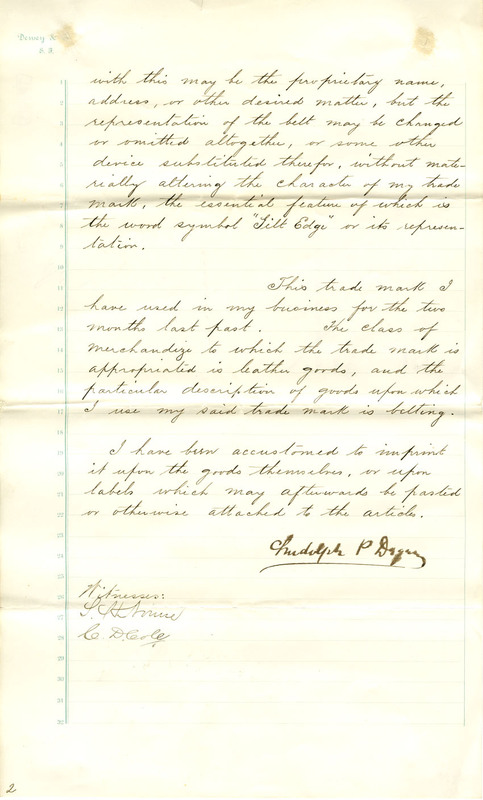 Dewey &
S. F.
1 with this may be the proprietary name,
2 address, or other desired matter, but the
3 representation of the belt may be changed
4 or omitted altogether, or some other
5 device substituted therefor, without mate-
6 rially altering the character of my trade
7 mark, the essential feature of which is
8 the word symbol "Gilt Edge" or its represen-
9 tation.
10
11 This trade mark I
12 have used in my business for the two
13 months last past. The class of
14 merchandize to which the trade mark is
15 appropriated is leather goods, and the
16 particular description of goods upon which
17 I use my said trade mark is belting.
18
19 I have been accustomed to imprint
20 it upon the goods themselves, or upon
21 labels which may afterwards be pasted
22 or otherwise attached to the article.
23
24 P
25
26 Witnesses:
27 S. H. Nourse
28 C. D. Cole
29
30
31
32
2